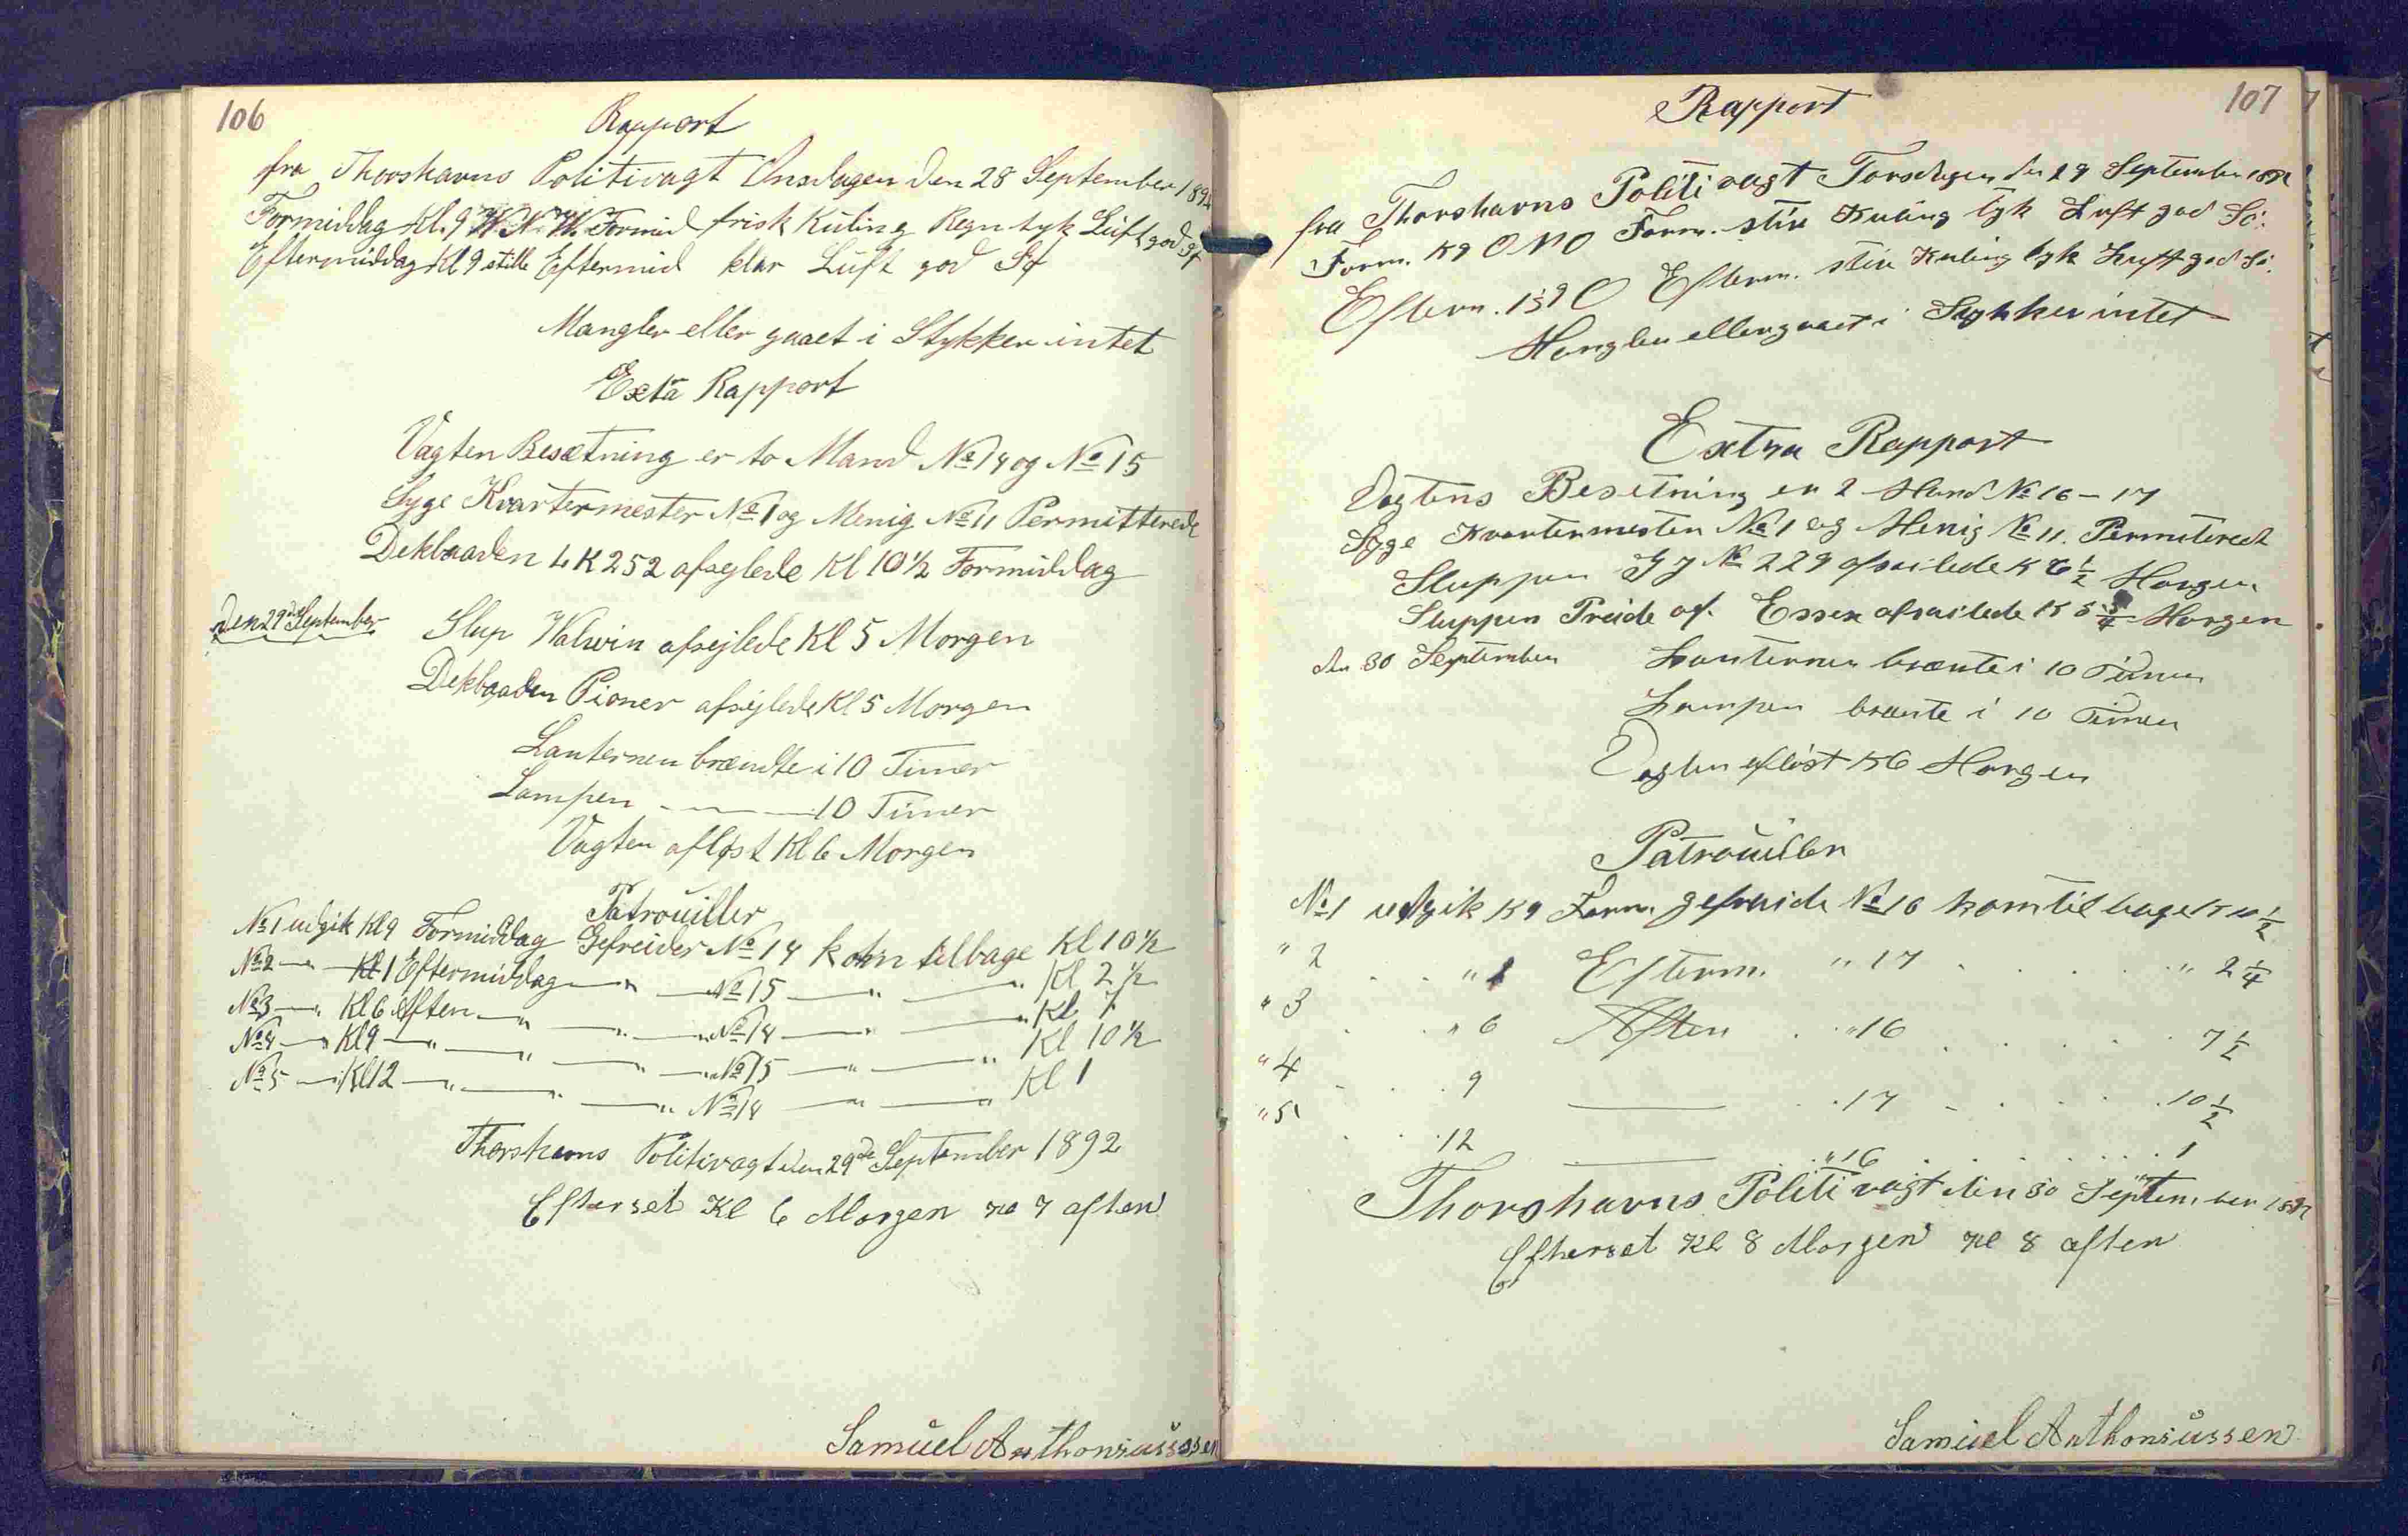 106
Rapport
fra Thorshavns Politivagt Onsdagen den 28 September 1892
Formiddag Kl. 9 W.N.W. Formid frisk Kuling Regn tyk Luft god Sø
Eftermiddag Kl 9 stille Eftermid klar Luft god Sø
Mangler eller gaaet i Stykker intet
Exta Rapport
Vagten Besætning er to Mand No 14 og No 15
Syge Kvartermester No 1 og Menig No 11 Permitterede
Dekbaaden LK 252 afsejlede Kl 10½ Formiddag
Den 29de September Slup Walwin afsejlede Kl 5 Morgen
Dekbaaden Pioner afsejlede Kl 5 Morgen
Lanternen brændte i 10 Timer
Lampen — " — 10 Timer
Vagten afløst Kl 6 Morgen
Patrouiller
No 1 udgik Kl 9 Formiddag Gefreider No 14 kom tilbage Kl 10½
No 2 — " — Kl 1 Eftermiddag — " — No 15 — " — " Kl 2½
No 3 — " Kl 6 Aften — " — " — No 14 — " — " Kl 7
No 4 — " Kl 9 — " — " — " — No 15 — " — " Kl 10½
No 5 — " Kl 12 — " — " — " No 14 — " — " Kl 1
Thorshavns Politivagt den 29de September 1892
Efterset Kl 6 Morgen Kl 7 aften
Samuel Anthoniussen
107
Rapport
fra Thorshavns Politivagt Torsdagen den 29 September 1892
Form. K 9 ONO Form. stiv Kuling tyk Luft god Sö.
Efterm. K 9 O Efterm. stiv Kuling tyk Luft god Sö.
Mangler eller gaaet i Stykker intet
Extra Rapport
Vagtens Besetning er 2 Mand No 16 – 17
Syge Kvartermesten No 1 og Menig No 11. Permitered
Sluppen No 229 afseilede K 6½ Morgen
Sluppen Preide af Essex afseilede K 5¾ Morgen
den 30 September Lanternen brænte i 10 Timer
Lampen brænte i 10 Timer
Vagten aflöst K 6 Morgen
Patrouiller
No 1 udgik K 9 Form. gefreide No 16 kom tilbage K 10½
" 2 . . " 1 Efterm. " 17 . . . " 2¼
" 3 . . " 6 Aften . " 16 . . . . 7½
" 4 . . . 9 — . 17 . . . . 10½
" 5 . . . 12 — . " 16 . . . . 1
Thorshavns Politivagt den 30 September 1892
Efterset Kl 8 Morgen Kl 8 aften
Samuel Anthoniussen